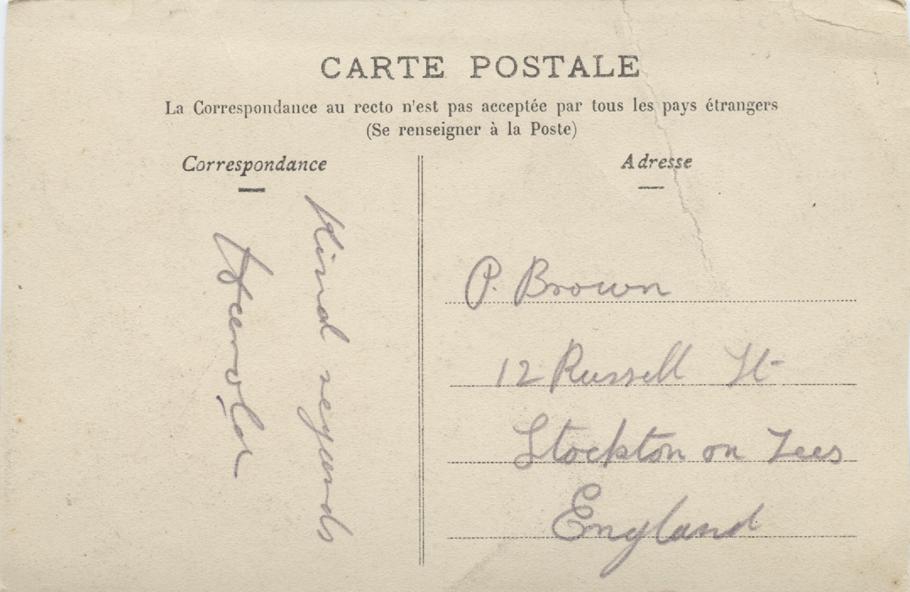 CARTE POSTALE
La Correspondance au recto n'est pas acceptée par tous les pays étrangers
(Se renseigner à la Poste)
Correspondance
Kind regards
Adresse
P. Brown
12 Russell St
Stockton on Tees
England